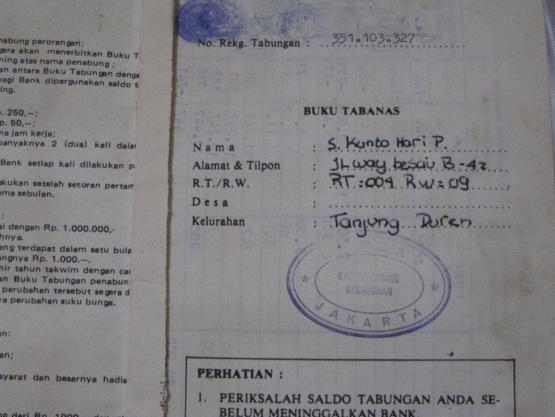 nabung perorangan;
gara akan menerbitkan Buku T
ning atas nama penabung;
an antara Buku Tabungan denga
bagi Bank dipergunakan saldo t
ing.
p. 250,—;
p. 50,—;
na jam kerja;
banyaknya 2 (dua) kali dalam
Bank setiap kali dilakukan p
kukan setelah setoran pertam
ma sebulan.
:
ai dengan Rp. 1.000.000,-
hnya.
eng terdapat dalam satu bula
angnya Rp. 1.000.—,
hir tahun takwim dengan car
an Buku Tabungan penabun
perubahan tersebut segera d
ya perubahan suku bunga.
an:
an;
syarat dan besarnya hadia
No. Rekg. Tabungan : 351.103.327
BUKU TABANAS
Nama : S. Kunto Hari P.
Alamat & Tilpon : JL way besai B-42
R.T./R.W. : RT:004 RW:09
Desa :
Kelurahan : Tanjung Duren
KANTOR CABANG
JAKARTA
PERHATIAN :
1. PERIKSALAH SALDO TABUNGAN ANDA SE-
BELUM MENINGGALKAN BANK